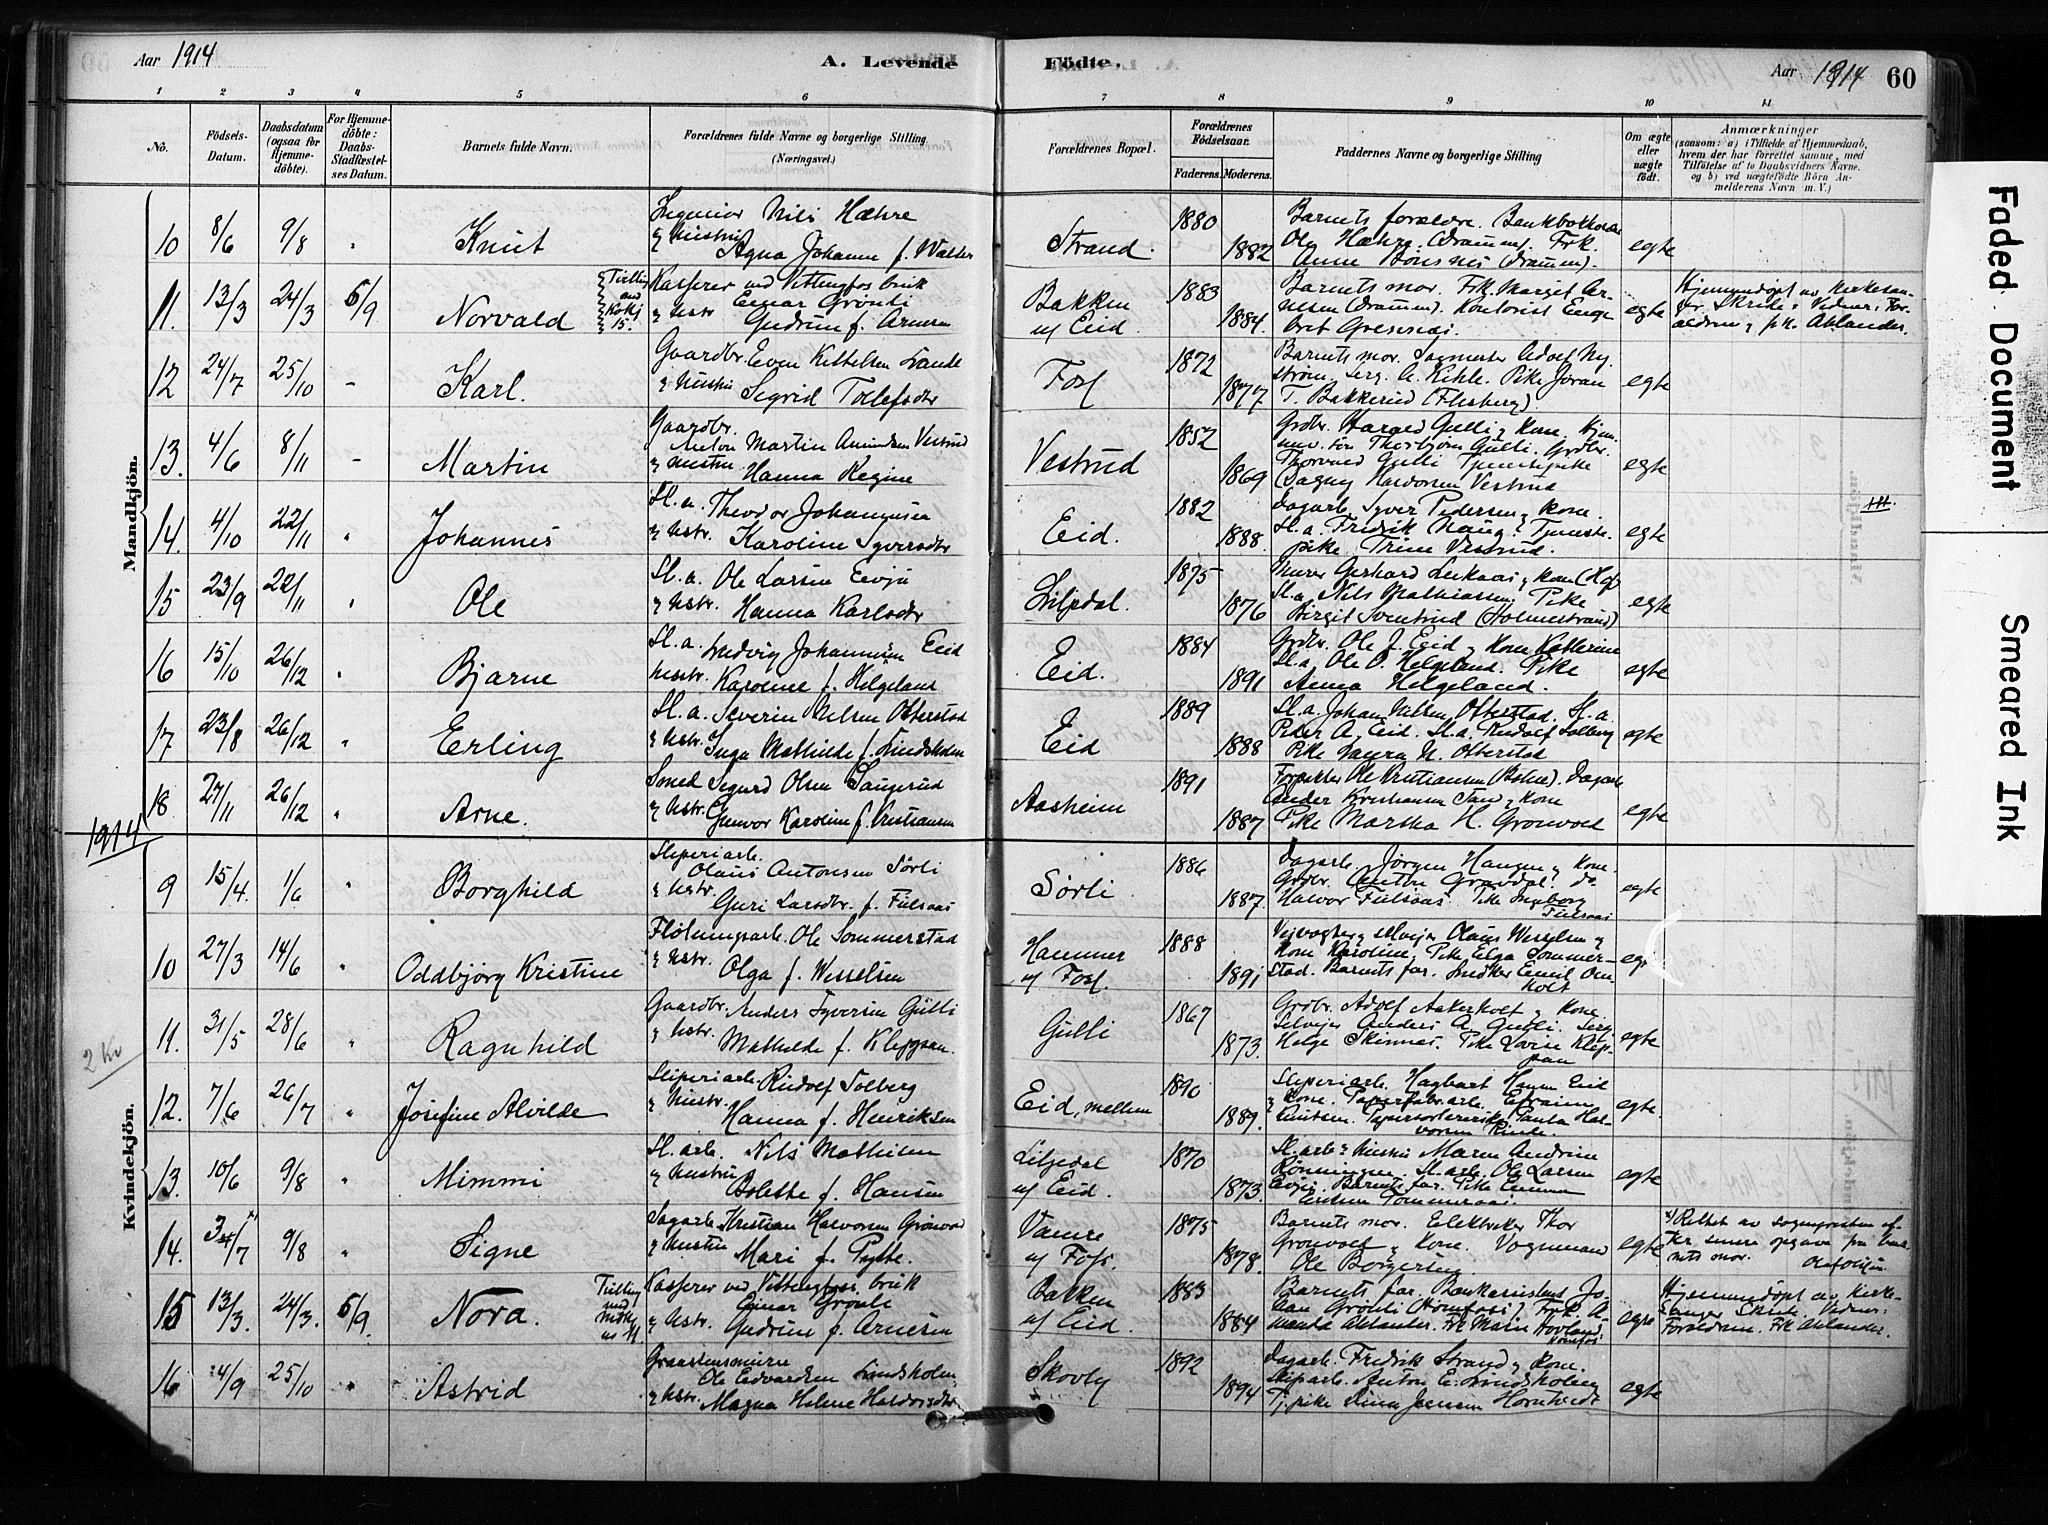 Aar 1914
A. Levende
Födte.
Aar 1914 60
1 2 3 4 5 6 7 8 9 10 11
No.
Födsels-
Datum.
Daabsdatum
(ogsaa for
Hjemme-
döbte).
For Hjemme-
döbte:
Daabs-
Stadfæstel-
ses Datum.
Barnets fulde Navn.
Forældrenes fulde Navne og borgerlige Stilling
(Næringsvei.)
Forældrenes Bopæl.
Forældrenes
Födselsaar.
Faderens. Moderens.
Faddernes Navne og borgerlige Stilling
Om ægte
eller
uægte
födt.
Anmærkninger
(saasom: a) i Tilfælde af Hjemmedaab,
hvem der har forrettet samme, med
Tilföielse af to Daabsvidners Navne,
og b) ved uægtefödte Börn An-
melderens Navn m. V.)
Mandkjön.
10 8/6 9/8 " Knut
Ingeniør Nils Hæhre
& hustru Agna Johanne f. Walter
Strand. 1880 1882
Barnets forældre.
Ole Hæhre (Drammen). Frk.
Anne (Drammen).
egte
11. 13/3 24/3 6/9 Norvald
Kasserer ved Vittingfos bruk
Einar Grönli
& hstr Gudrun f. Arnesen
Bakken
u/ Eid. 1883 1884.
Barnets mor. Frk. Margit Ar-
nesen (Drammen). Kontorist
egte
Hjemmedöpt av kirkesan-
ger Skrede. Vidner: For-
ældrene, frk. Ahlander.
12 24/7 25/10 - Karl.
Gaardbr. Even Kittelsen Lande
& hustru Sigrid Tollefsdtr
Foss 1872 1877.
Barnets mor. Sagmester Adolf Ny-
strøm, Serg. A. Kihle. Pike Jøran
T. Bakkerud (Flesberg)
egte
13. 4/6 8/11 - Martin
Gaardbr.
Anton Martin Amundsen Vestrud
& hustru Hanna Regine
Vestrud 1852 1869
Grdbr. Harald Gulli & kone.
Thorbjørn Gulli. Grdbr.
Thorvald Gulli Tjenestepike
Dagny Haldorsen Vestrud
egte
14. 4/10 22/11 " Johannes
Sl. a. Theodor Johannesen
& hstr. Karoline Syversdtr
Eid. 1882 1888.
Dagarb. Syver Pedersen & kone.
Sl. a. Fredrik Haug. Tjeneste-
pike Trine Vestrud.
egte
15 23/9 22/11 " Ole
Sl. a. Ole Larsen Evju
& hstr. Hanna Karlsdtr
Liljedal. 1875 1876
Murer Gerhard & kone (Hof)
Sl. a. Nils Mathiassen, Pike
Birgit (Holmestrand)
egte
16 15/10 26/12 " Bjarne
Sl. a. Ludvig Johannesen Eid
hustr. Karoline f. Helgeland
Eid. 1884 1891
Grdbr. Ole J. Eid & kone Kathrine
Sl. a. Ole O. Helgeland. Pike
Anna Helgeland.
egte
17 23/8 26/12 " Erling
Sl. a. Severin Nilsen Otterstad
& hstr. Inga Mathilde f. Lindsholm
Eid 1889 1888
Sl. a. Johan Nilsen Otterstad. Sl. a.
Peder A. Eid. Sl. a. Rudolf Solberg
Pike Laura N. Otterstad
egte
18. 27/11 26/12 " Arne.
Smed Sigurd Olsen Haugerud
& hstr. Gunvor Karoline f. Kristiansen
Aasheim 1891 1887
Ole Kristiansen Dagarb.
& kone
Pike Martha H. Gronvold
egte
1914
Kvindekjön.
9 15/4. 1/6 " Borghild
Sliperiarb.
Olaus Antonsen Sörli
& hstr. Guri Larsdtr. f. Fulsaas
Sörli 1886 1887.
Dagarb. Jörgen Hansen & kone.
Grdbr. Anton Gravdal. do
Halvor Fulsaas. Pike Ingeborg
Fulsaas
egte
10 27/3 14/6 " Oddbjörg Kristine
Flötningsarb. Ole Sommerstad
& hstr. Olga f. Wesselsen
Hammer
u/ Foss. 1888 1891
Veivogter & selveier Olaus Wesselsen &
kone Karoline, Pike Elga Sommer-
stad. Barnets far. Snedker Emil Om-
holt
egt
11. 31/5 28/6 " Ragnhild
Gaardbr. Anders Syversen Gulli
& hstr. Mathilde f. Kleppan.
Gulli 1867 1873.
Grdbr. Adolf Aakerholt & kone.
Selveier Anders A. Gulli. Serg.
Helge Skinnes. Pike Lovise Klep-
pan
egte
2 Kv
12. 7/6 26/7 " Josefine Alvilde
Sliperiarb. Rudolf Solberg
& hustr. Hanna f. Henriksen
Eid, mellem 1890 1889.
Sliperiarb. Hagbart Hansen Eid
& kone. Papirfabr.arb. Efraim
Knutsen. Papirsorterersk. Paula Hal-
vorsen Rinde.
egte
13. 10/6 9/8 " Mimmi
Sl. arb. Nils Mathisen
& hustru Bolette f. Hansen
Liljedal
u/ Eid. 1870 1873.
Sl. arb & hustru Maren Andrine
Rönningen. Sl. arb. Ole Larsen
Evju. Barnets far. Pike Emma
egte
14. 3/7 x) 9/8 " Signe
Sagarb. Kristian Halvorsen Gronvold
& hustru Mari f.
Vamre
u/ Foss. 1875 1878.
Barnets mor. Elektriker Thor
Gronvold & kone. Vognmand
Ole Borgersen
egte
x) Rettet av sognepresten ef-
ter senere opgave fra bar-
nets mor.
15 13/3. 24/3. 6/9. Nora.
Kasserer ved Vittingfoss bruk
Einar Grönli
& hstr. Gudrun f. Arnesen
Bakken
u/ Eid. 1883 1884
Barnets far. Jo-
han Grönli (Hönefoss). Frk. A-
manda Ahlander. Frk Marie Hovland,
Hönefos
egte
Hjemmedöpt av Kirke-
sanger Skrede. Vidner:
Forældrene. Frk Ahlander.
16 4/9 25/10 " Astrid
Graastensmurer
Ole Edvardsen Lindsholm
& hstr. Magna Helene Haldorsdtr
Skovly 1892 1894
Dagarb. Fredrik Strand & kone.
Sliparb. Anton E. Lindsholm
Tj. pike Dina Jensen Horntvedt
egte
Faded Document
Smeared Ink